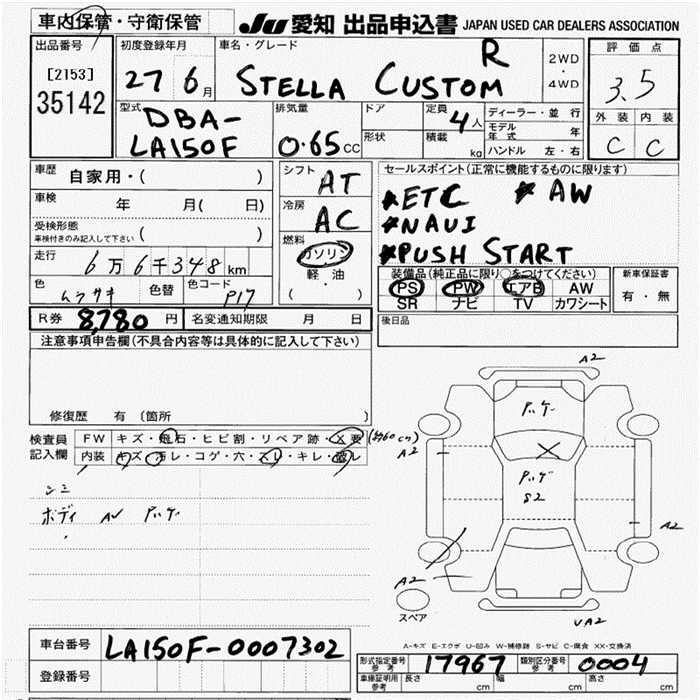 車内保管・守衛保管
JU 愛知 出品申込書 JAPAN USED CAR DEALERS ASSOCIATION
出品番号
[2153]
35142
初度登録年月
27 6月
車名・グレード
STELLA CUSTOM R
2WD
・
4WD
評価点
3.5
外装 内装
C C
型式
DBA-
LA150F
排気量
0.65 CC
ドア
形状
定員 4人
積載 kg
ディーラー・並行
モデル年式 年
ハンドル 左・右
車歴 自家用・( )
車検 年 月( 日)
受検形態
車検付きのみ記入して下さい ( )
走行 6万6千348km
色 ムラサキ 色替 色コード P17
シフト AT
冷房 AC
燃料
ガソリン
軽・油
( )
セールスポイント(正常に機能するものに限ります)
*ETC *AW
*NAVI
*PUSH START
装備品(純正品に限り○をつけてください)
PS PW エアB AW
SR ナビ TV カワシート
新車保証書
有・無
R券 8,780円 名変通知期限 月 日
後日品
注意事項申告欄(不具合内容等は具体的に記入して下さい)
修復歴 有(箇所 )
検査員
記入欄
FW キズ・飛石・ヒビ割・リペア跡・X要
内装 キズ・汚レ・コゲ・穴・スレ・キレ・破レ
シミ
ボディ AV ハゲ
A2
ハゲ
A2
ハゲ
S2
A2
A2
スペア
UA2
A-キズ E-エクボ U-凹み W-補修跡 S-サビ C-腐食 XX-交換済
車台番号 LA150F-0007302
登録番号
形式指定番号
参考
17967
類別区分番号
参考
0004
車庫証明用
参考
長さ cm 幅 cm 高さ cm